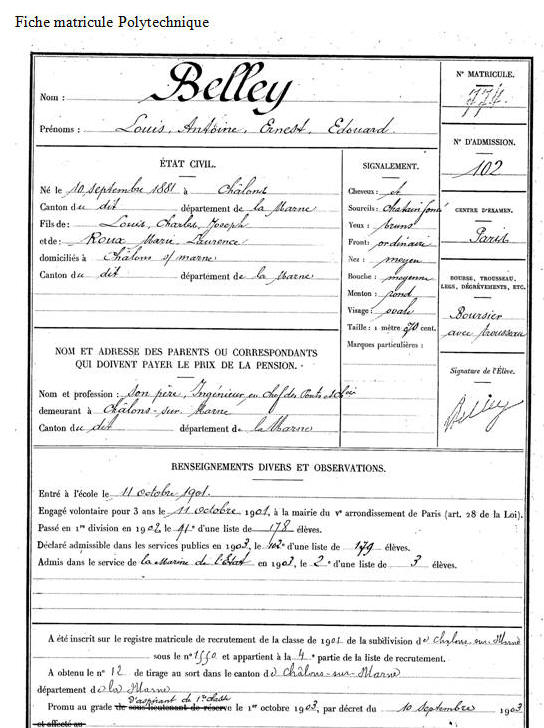 Fiche matricule Polytechnique
Nom : Belley
Prénoms : Louis, Antoine, Ernest, Edouard.
N° MATRICULE.
774.
N° D'ADMISSION.
102
CENTRE D'EXAMEN.
Paris
BOURSE, TROUSSEAU, LEGS, DÉGRÈVEMENTS, ETC.
Boursier
avec trousseau
Signature de l'Élève.
Belley
ÉTAT CIVIL.
Né le 10 septembre 1881 à Châlons
Canton du dit département de la Marne
Fils de : Louis, Charles, Joseph
et de : Roux Marie Laurence
domiciliés à Châlons s/ marne
Canton du dit département de la Marne
SIGNALEMENT.
Cheveux : et
Sourcils : Chatain foncé
Yeux : bruns
Front : ordinaire
Nez : moyen
Bouche : moyenne
Menton : rond
Visage : ovale
Taille : 1 mètre 70 cent.
Marques particulières :
NOM ET ADRESSE DES PARENTS OU CORRESPONDANTS
QUI DOIVENT PAYER LE PRIX DE LA PENSION.
Nom et profession : Son père, Ingénieur en chef des Ponts et
demeurant à Châlons-sur-Marne
Canton du dit département de la Marne
RENSEIGNEMENTS DIVERS ET OBSERVATIONS.
Entré à l'école le 11 octobre 1901.
Engagé volontaire pour 3 ans le 11 octobre 1901, à la mairie du Ve arrondissement de Paris (art. 28 de la Loi).
Passé en 1re division en 1902, le d'une liste de 178 élèves.
Déclaré admissible dans les services publics en 1903, le d'une liste de 179 élèves.
Admis dans le service de la Marine de l'Etat en 1903, le 2e d'une liste de 3 élèves.
A été inscrit sur le registre matricule de recrutement de la classe de 1901 de la subdivision de Chalons-sur-Marne
sous le n° 1550 et appartient à la 4e partie de la liste de recrutement.
A obtenu le n° 12 de tirage au sort dans le canton de Châlons-sur-Marne
département de la Marne
d'aspirant de 1re classe
Promu au grade de sous-lieutenant de réserve le 1er octobre 1903, par décret du 10 septembre 1903
et affecté au